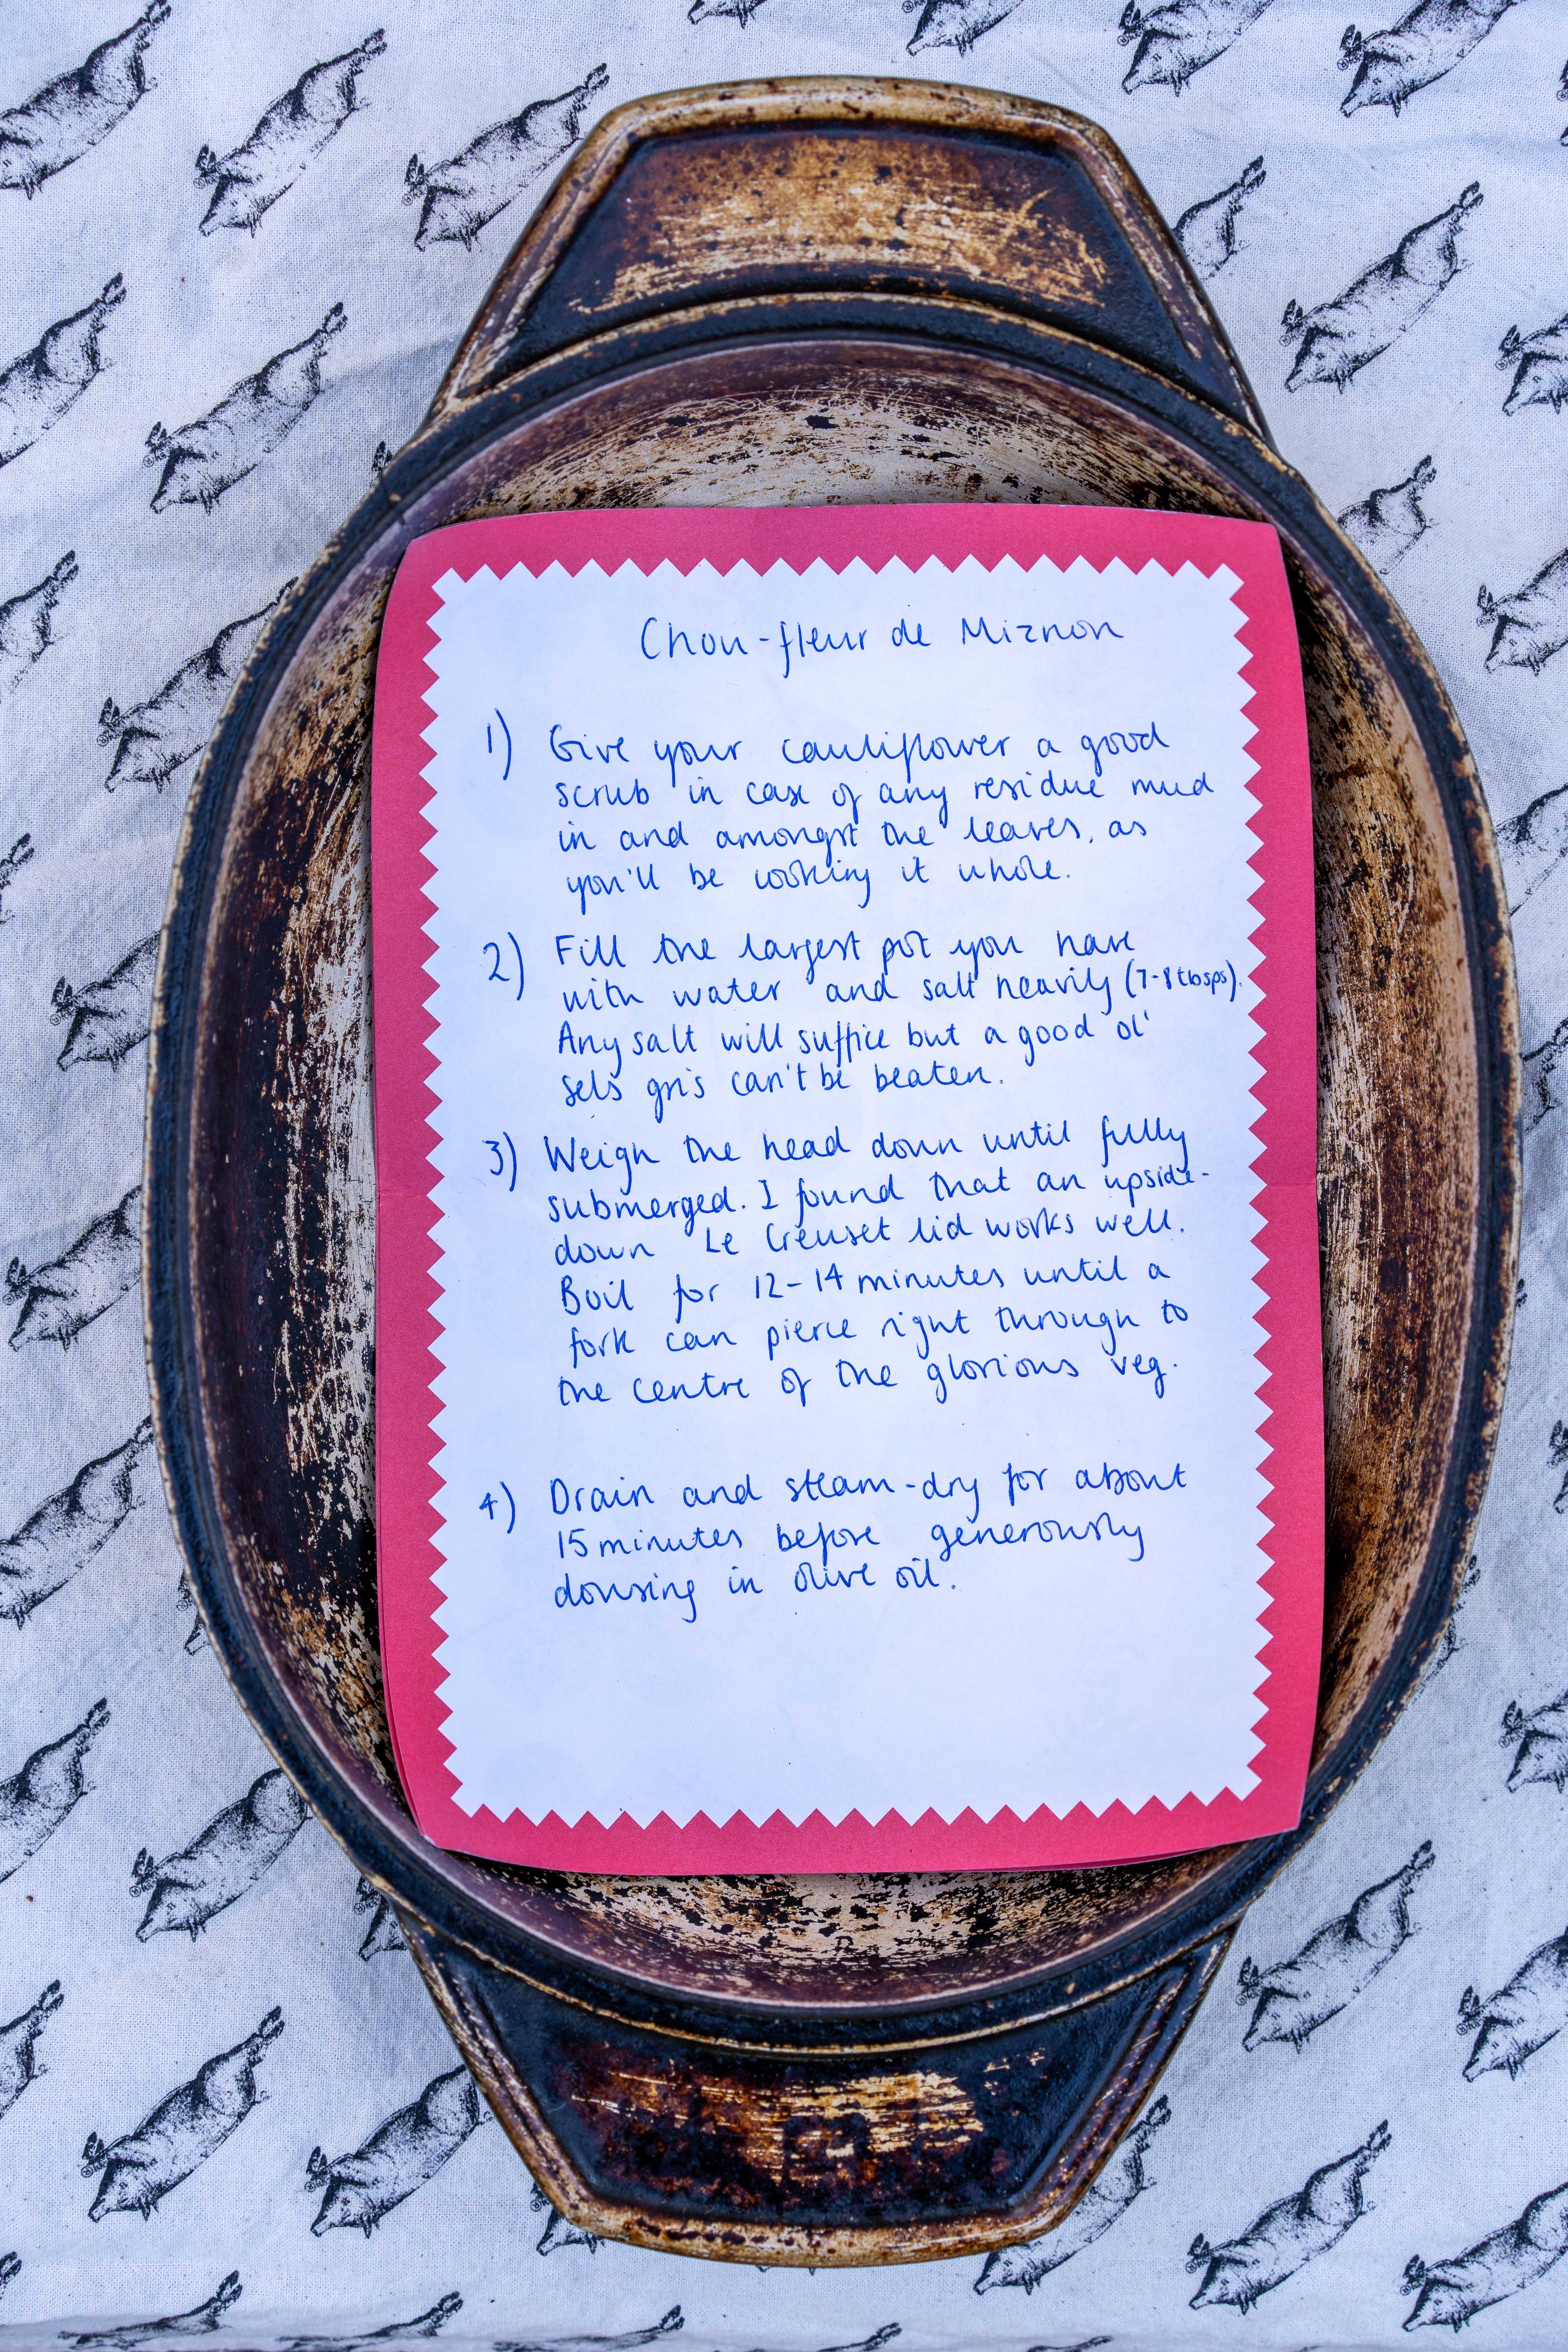 Chou-fleur de Miznon
1) Give your cauliflower a good
scrub in case of any residue mud
in and amongst the leaves, as
you'll be cooking it whole.
2) Fill the largest pot you have
with water and salt heavily (7-8 tbsps).
Any salt will suffice but a good ol'
sels gris can't be beaten.
3) Weigh the head down until fully
submerged. I found that an upside-
down Le Creuset lid works well.
Boil for 12-14 minutes until a
fork can pierce right through to
the centre of the glorious veg.
4) Drain and steam-dry for about
15 minutes before generously
dousing in olive oil.